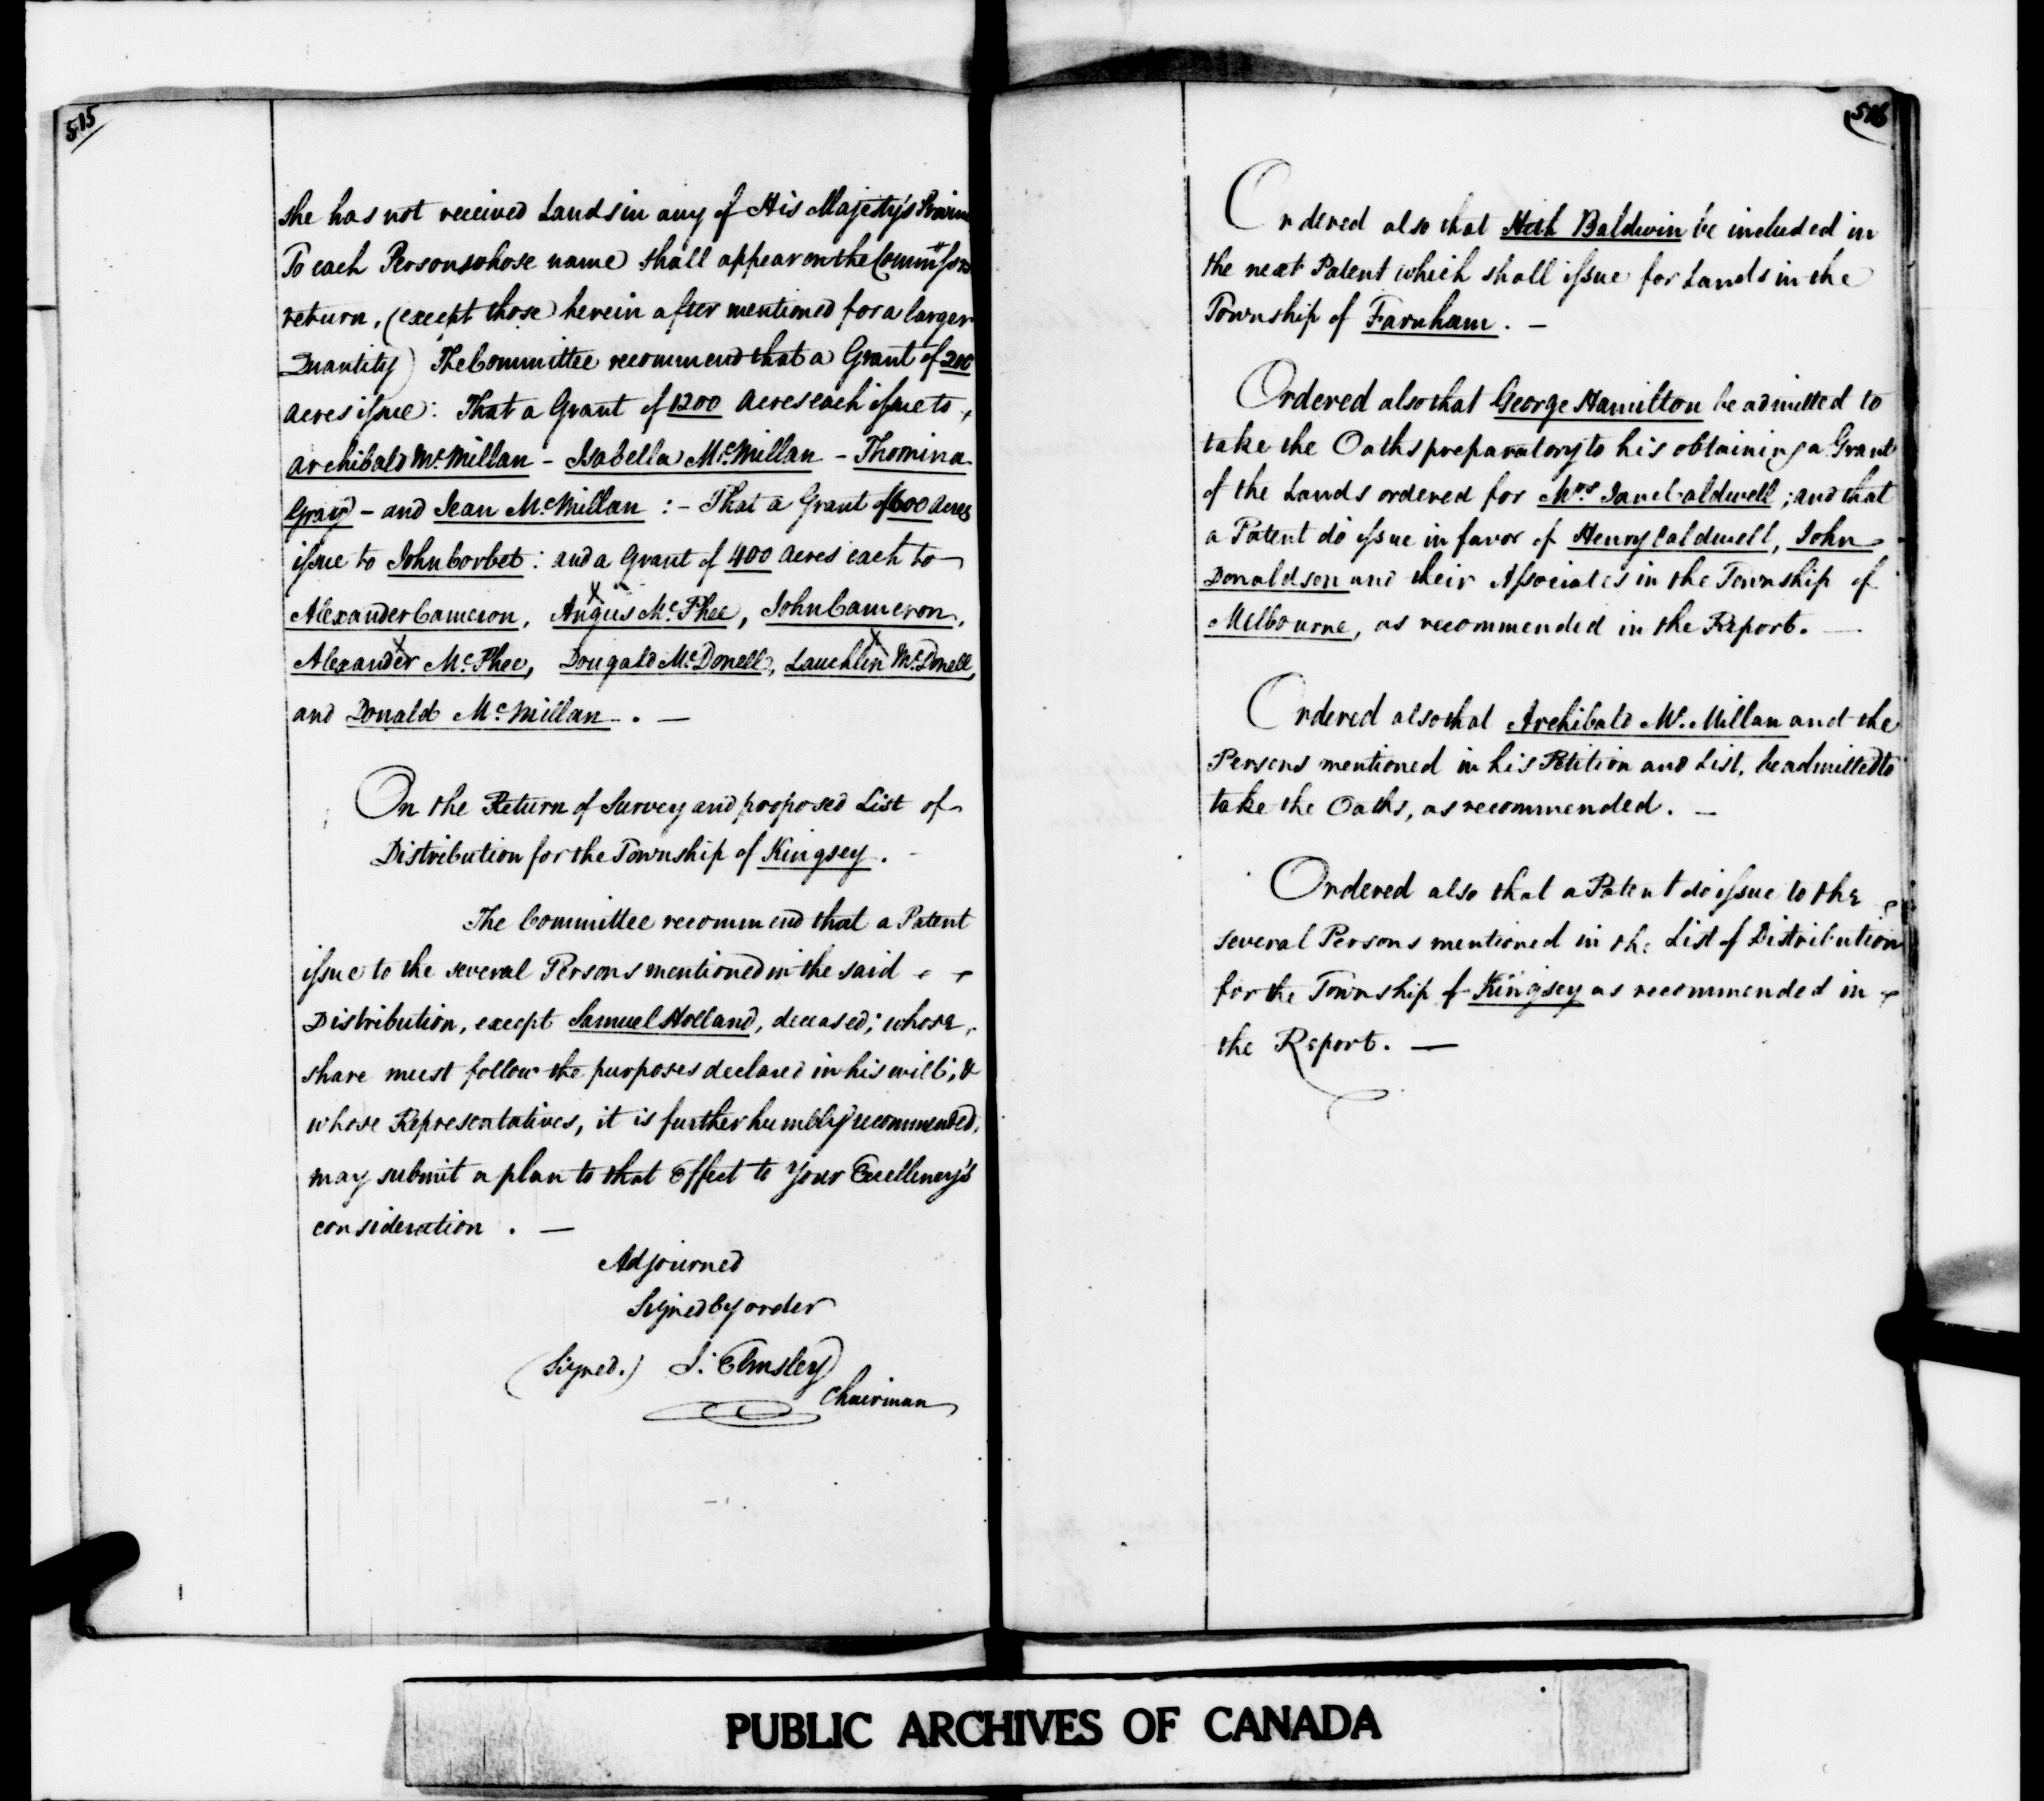 515
she has not received Lands in any of His Majesty's
To each Person whose name shall appear on the
return, (except those herein after mentioned for a larger
Quantity) The Committee recommend that a Grant of 200
acres issue: That a Grant of 1200 Acres each issue to
Archibald McMillan - Isabella McMillan - Thomina
Gray - and Jean McMillan : - That a Grant of 600 Acres
issue to John Corbet : and a Grant of 400 Acres each to
Alexander Cameron, Angus McPhee, John Cameron,
Alexander McPhee, Dougald McDonell, Lauchlin McDonell,
and Donald McMillan . —
On the Return of Survey and proposed List of
Distribution for the Township of Kingsey. -
The Committee recommend that a Patent
issue to the several Persons mentioned in the said
Distribution, except Samuel Holland, deceased; whose
share must follow the purposes declared in his will; &
whose Representatives, it is further humbly recommended,
may submit a plan to that Effect to Your Excellency's
consideration . —
Adjourned
Signed by order
(Signed.) J. Elmsley
Chairman
516
Ordered also that Baldwin be included in
the next Patent which shall issue for Lands in the
Township of Farnham. —
Ordered also that George Hamilton be admitted to
take the Oaths preparatory to his obtaining a Grant
of the Lands ordered for Mrs Jane Caldwell; and that
a Patent do issue in favor of Henry Caldwell, John
Donaldson and their Associates in the Township of
Melbourne, as recommended in the Report. —
Ordered also that Archibald McMillan and the
Persons mentioned in his Petition and List, be admitted to
take the Oaths, as recommended. —
Ordered also that a Patent do issue to the
several Persons mentioned in the List of Distribution
for the Township of Kingsey as recommended in
the Report. —
PUBLIC ARCHIVES OF CANADA